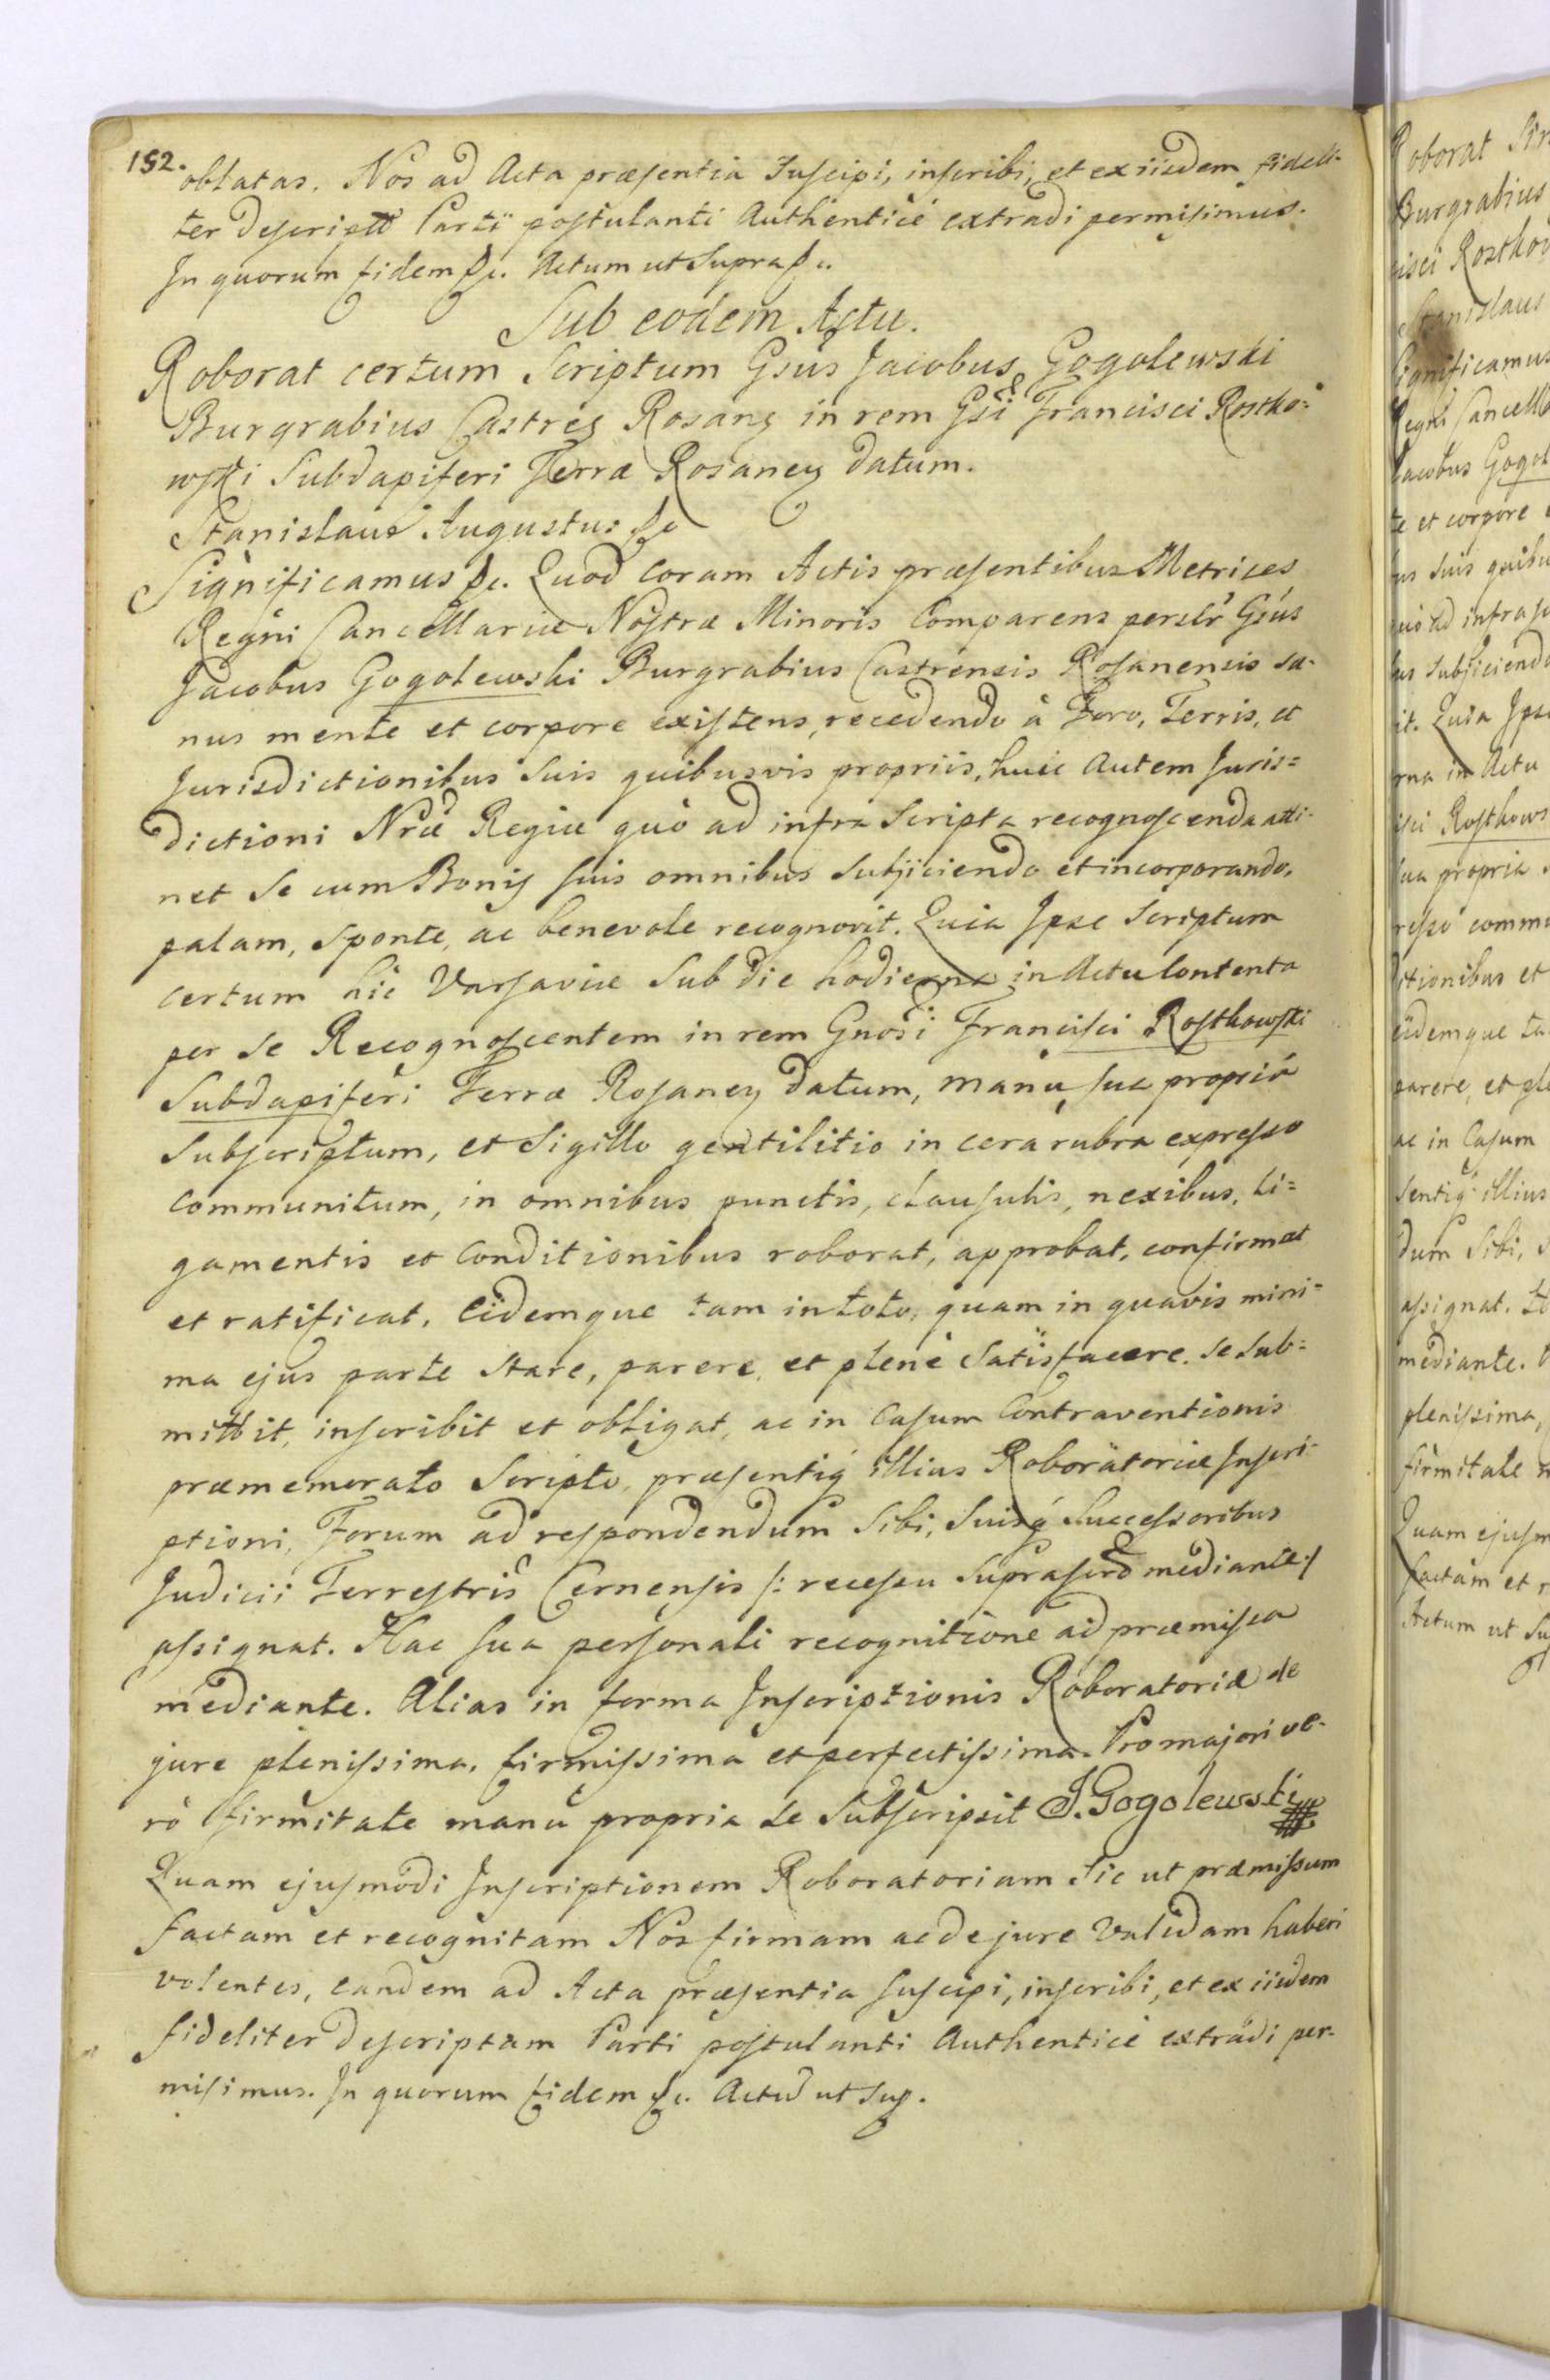 152.
oblatas. Nos ad Acta præsentia Suscipi, inscribi, et ex iisdem fideli-
ter descript Parti postulanti Authentice extradi permisimus.
In quorum fidem &c. Actum ut Supra &c.
Sub eodem Actu.
Roborat certum Scriptum Gsus Jacobus Gogolewski
Burgrabius Castreñ Rosan in rem Gsi Francisci Rostko=
wski Subdapiferi Terræ Rosaneñ datum.
Stanislaus Augustus &c
Significamus &c. Quod coram Actis præsentibus Metrices
Regni Cancellariæ Nostræ Minoris Comparens persłr Gsus
Jacobus Gogolewski Burgrabius Castrensis Rosanensis sa-
nus mente et corpore existens, recedendo à Foro, Terris, et
Jurisdictionibus Suis quibusvis propriis, huic Autem Juris=
dictioni Nræ Regiæ quò ad infra Scripta recognoscenda atti-
net Se cum Bonis suis omnibus Subjiciendo et incorporando.
palam, sponte, ac benevole recognovit. Quia Ipse Scriptum
certum hic Varsaviæ Sub die hodierna in Actu Contenta
per Se Recognoscentem in rem Gnosi Francisci Rosthowski
Subdapiferi Terræ Rosaneñ datum, manu sua propriâ
Subscriptum, et Sigillo gentilitio in cera rubra expresso
Communitum, in omnibus punctis, clausulis, nexibus, li=
gamentis et Conditionibus roborat, approbat, confirmat
et ratificat. Eidemque tam in toto, quam in quavis mini=
ma ejus parte stare, parere, et plenè Satisfacere. se sub=
mittit, inscribit et obligat, ac in Casum Contraventionis
præmemorato Scripto, præsentiq́ illius Roboratoriæ Inscri-
ptioni, Forum ad respondendum Sibi, Suisq́ Successoribus
Judicii Terrestris Cernensis /: recessu suprascrõ mediante :/
assignat. Hac sua personali recognitione ad præmissa
mediante. Alias in forma Inscriptionis Roboratoriæ de
jure plenissima, firmissima et perfectissima. Pro majori ve-
rò firmitate manu propria se Subscripsit J. Gogolewski
Quam ejusmodi Inscriptionem Roboratoriam Sic ut præmissum
factam et recognitam Nos firmam ac de jure Validam haberi
volentes, eandem ad Acta præsentia Suscipi, inscribi, et ex iisdem
fideliter descriptam Parti postulanti Authenticè extradi per-
misimus. In quorum fidem &c. Actũ ut Sup.
Burgrabius
Stanislaus
Significamus
te et corpore
us Suis quibu
us Subjiciendo
it. Quia Ipse
rna in Actu
sua propria
ctionibus et
parere, et ple
ac in Casum
dum Sibi, S
assignat.
mediante.
plenissima,
firmitate
Quam ejusm
factam et r
Actum ut Su